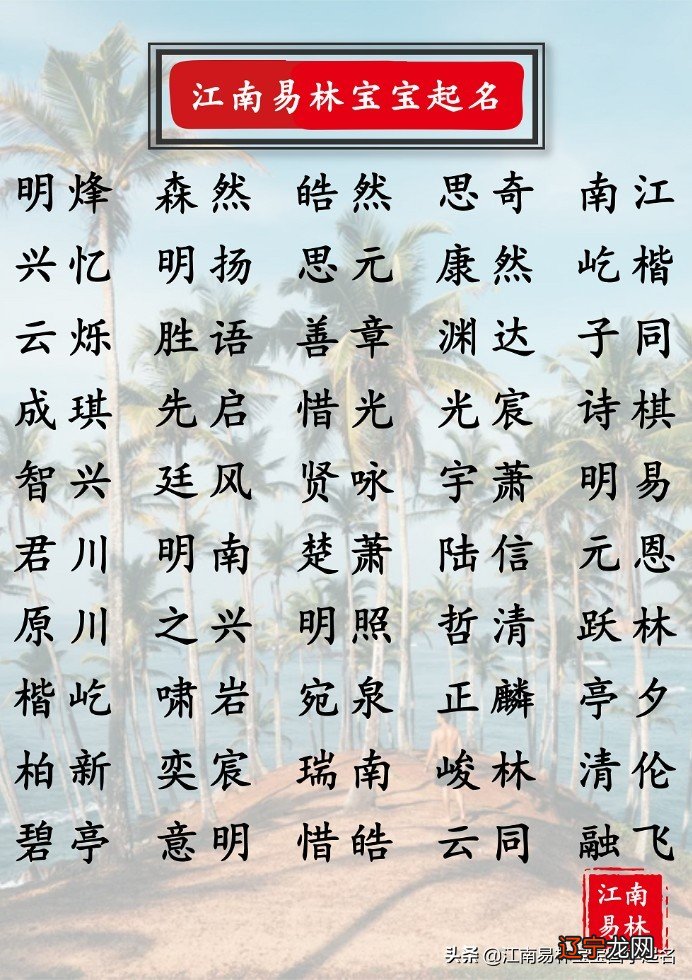 江南易林宝宝起名
明烽 森然 皓然 思奇 南江
兴忆 明扬 思元 康然 屹楷
云烁 胜语 善章 渊达 子同
成琪 先启 惜光 光宸 诗棋
智兴 廷风 贤咏 宇萧 明易
君川 明南 楚萧 陆信 元恩
原川 之兴 明照 哲清 跃林
楷屹 啸岩 宛泉 正麟 亭夕
柏新 奕宸 瑞南 峻林 清伦
碧亭 意明 惜皓 云同 融飞
江南
易林
辽宁龙网
头条 @江南易林宝宝
起名